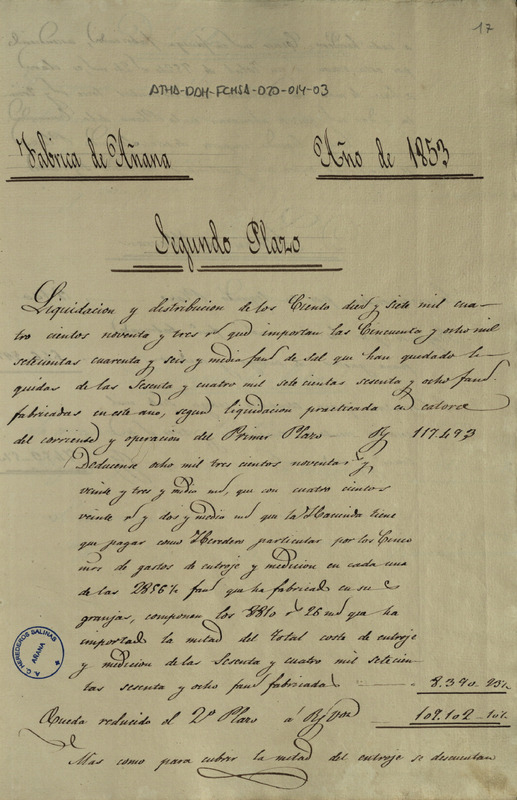 17
ATHA-DAH-FCHSA-020-014-03
Fabrica de Añana Año de 1853
Segundo Plazo
Liquidacion y distribucion de los Ciento diez y siete mil cua-
tro cientos noventa y tres r.^s que importan las Cincuenta y ocho mil
setecientas cuarenta y seis y media fan.^s de Sal que han quedado li-
quidas de las Sesenta y cuatro mil setecientas sesenta y ocho fan.^s
fabricadas en este año, segun liquidacion practicada en catorce
del corriente y operacion del Primer Plazo 117.493
Deducense ocho mil tres cientos noventa r.^s y
veinte y tres y medio m.^s, que con cuatro cientos
veinte r.^s y dos y medio m.^s que la Hacienda tiene
que pagar como Heredero particular por los Cinco
mrs. de gastos de entroje y medicion en cada una
de las 2856½ fan.^s que ha fabricado en sus
granjas, componen los 8810 r.^s 26 m.^s que ha
importado la mitad del total coste de entroje
y medicion de las Sesenta y cuatro mil setecien-
tas sesenta y ocho fan.^s fabricadas 8.390 23½
Queda reducido el 2.º Plazo á R.^s v.^on 109.102 10½
Mas como para cubrir la mitad del entroje se descuentan
A. C. HEREDEROS SALINAS
AÑANA